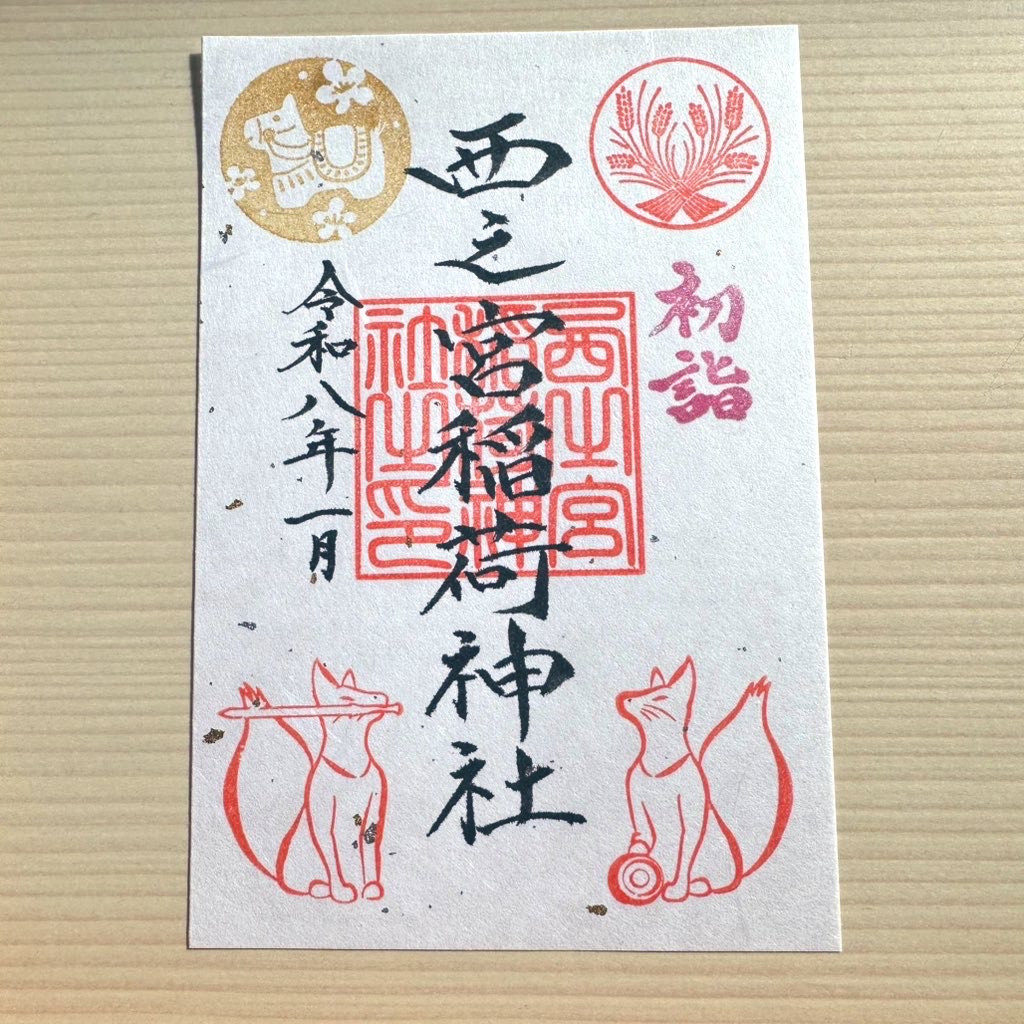 初詣
西之宮稲荷神社
西之宮
稲荷神
社之印
令和八年一月